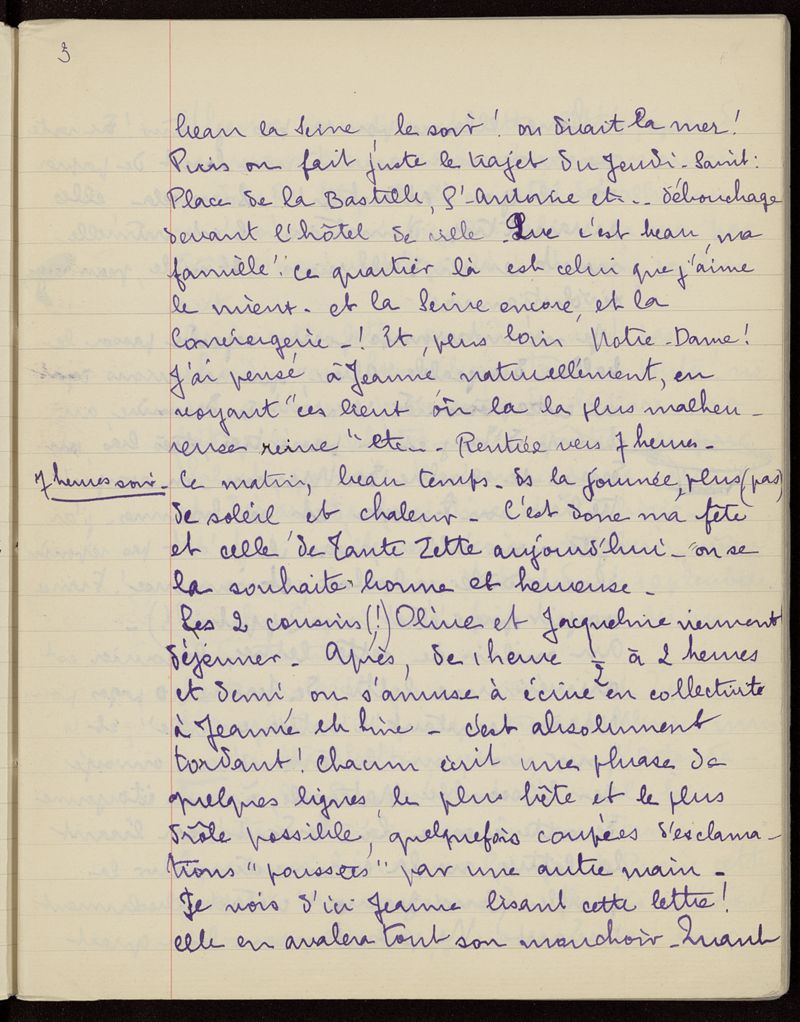 3
beau la Seine le soir ! on dirait la mer !
Puis on fait juste le trajet du Jeudi-Saint :
Place de la Bastille, St-Antoine etc... débouchage
devant l'hôtel de ville - Que c'est beau, ma
famille ! ce quartier là est celui que j'aime
le mieux - et la Seine encore, et la
Conciergerie - ! Et, plus loin Notre-Dame !
J'ai pensé à Jeanne naturellement, en
voyant "ces lieux où la la plus malheu-
reuse reine" etc... - Rentrée vers 7 heures -
7 heures soir - Ce matin, beau temps - ds la journée, plus (pas)
de soleil et chaleur - C'est donc ma fête
et celle de Tante Zette aujourd'hui - on se
la souhaite bonne et heureuse -
Les 2 cousins (!) Olive et Jacqueline viennent
déjeuner - Après, de 1 heure 1/2 à 2 heures
et demi, on s'amuse à écrire en collectivité
à Jeanne et - c'est absolument
tordant ! Chacun écrit une phrase de
quelques lignes le plus bête et le plus
drôle possible, quelquefois coupées d'exclama-
tions "poussées" par une autre main -
Je vois d'ici Jeanne lisant cette lettre !
elle en avalera tout son mouchoir - Quant